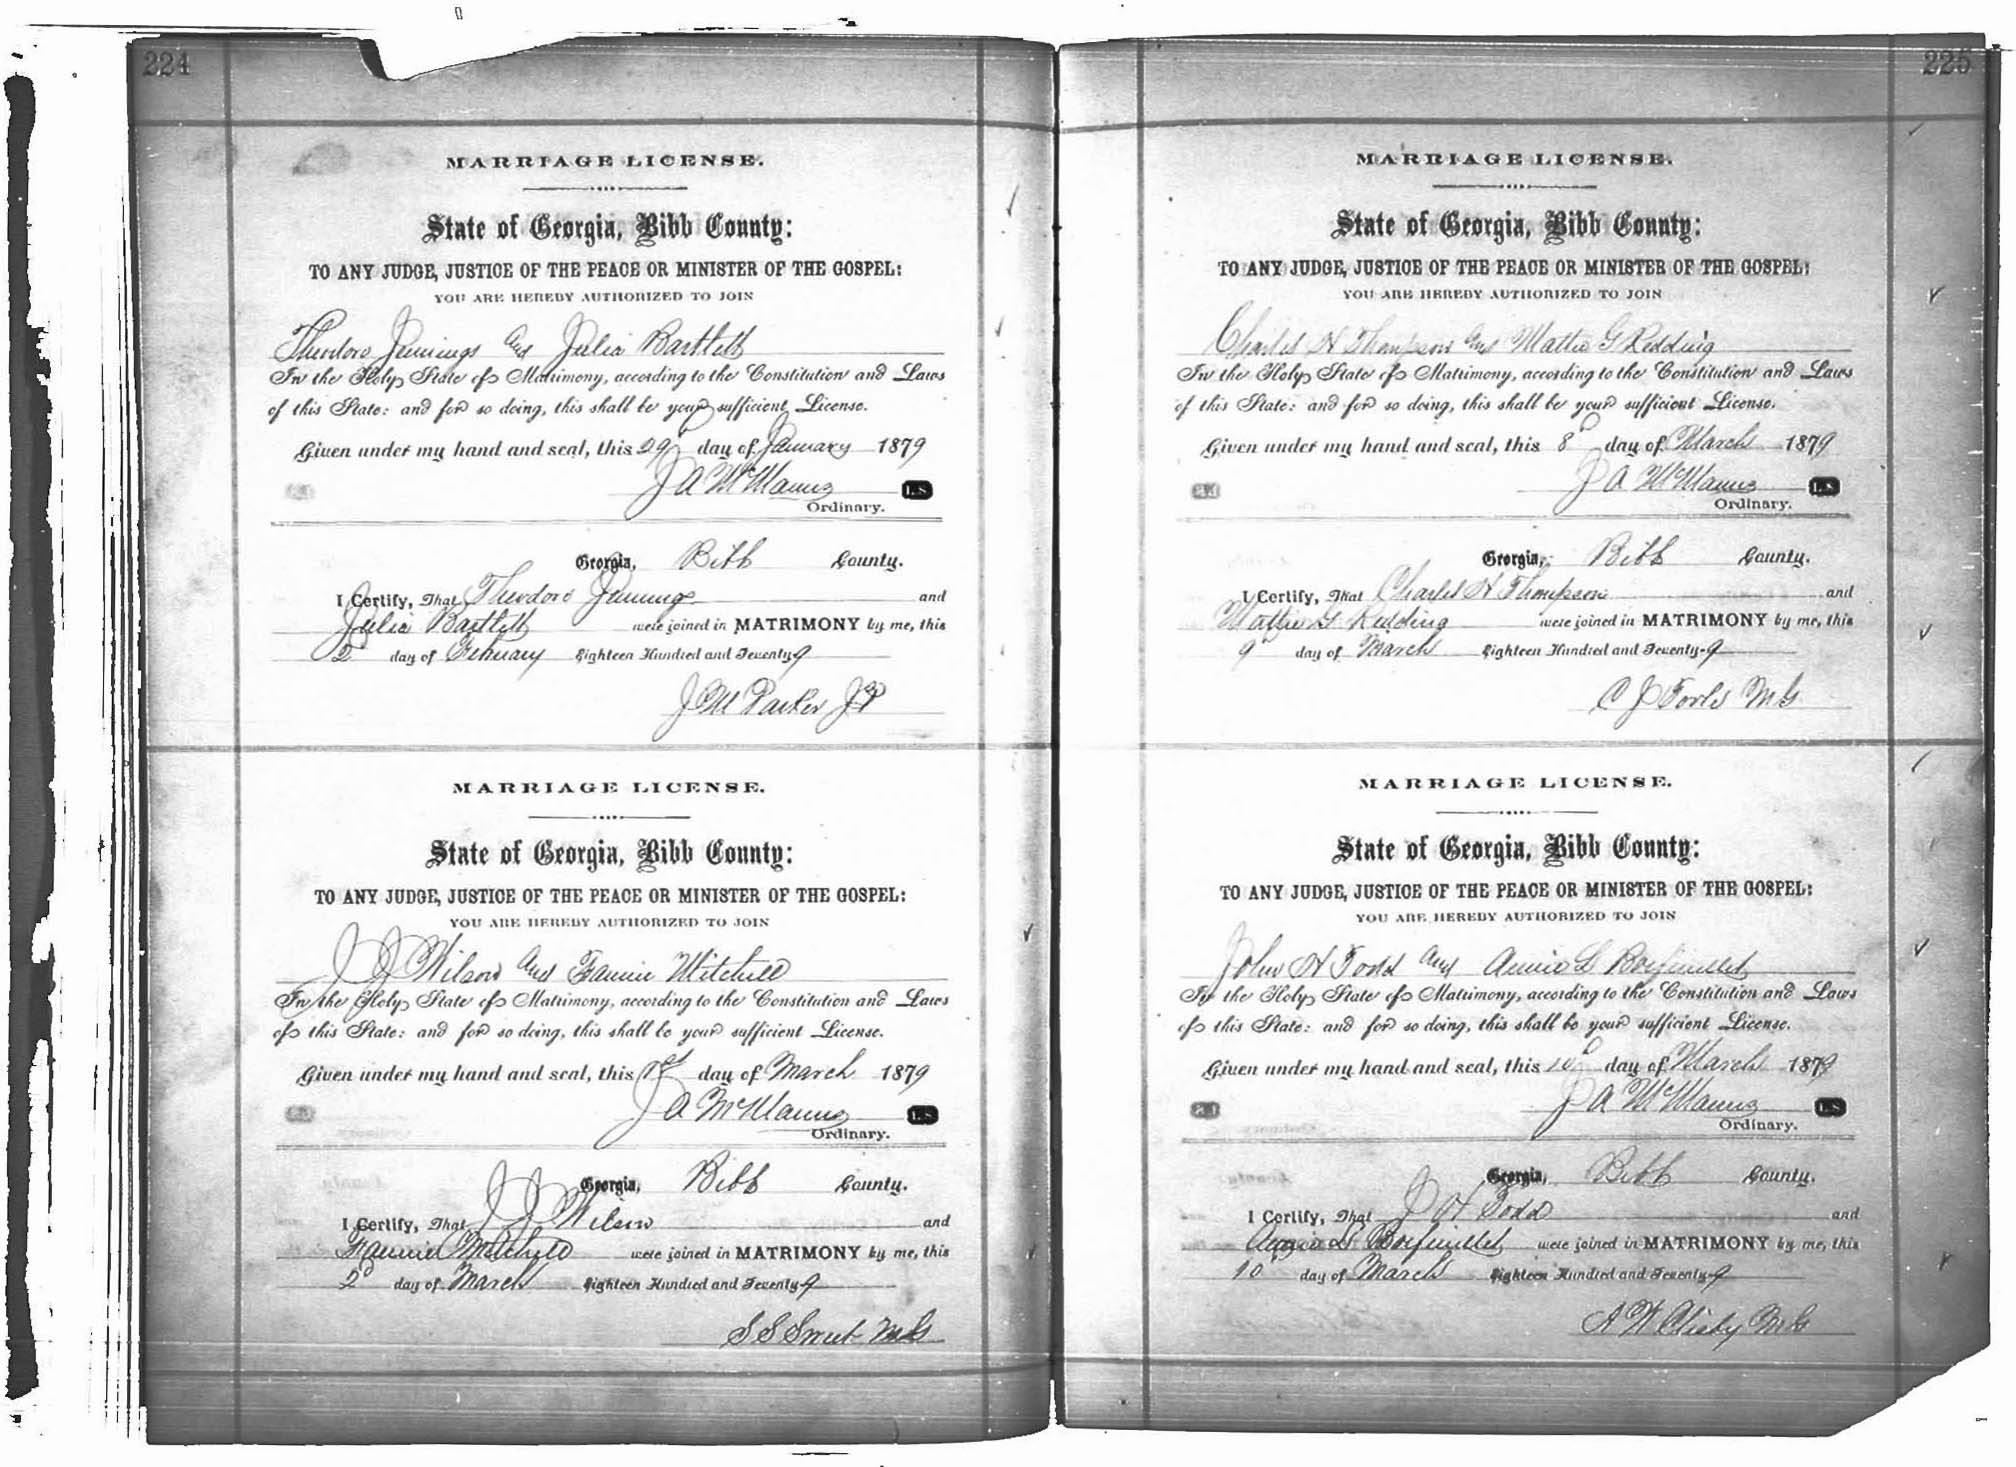 224
MARRIAGE LICENSE.
State of Georgia, Bibb County:
TO ANY JUDGE, JUSTICE OF THE PEACE OR MINISTER OF THE GOSPEL:
YOU ARE HEREBY AUTHORIZED TO JOIN
Theodore Jennings and Julia Bartlett
In the Holy State of Matrimony, according to the Constitution and Laws
of this State: and for so doing, this shall be your sufficient License.
Given under my hand and seal, this 29 day of January 1879
J A McManus L.S.
Ordinary.
Georgia, Bibb County.
I Certify, That Theodore Jennings and
Julia Bartlett were joined in MATRIMONY by me, this
2 day of February Eighteen Hundred and Seventy-9
J M Parker JP
MARRIAGE LICENSE.
State of Georgia, Bibb County:
TO ANY JUDGE, JUSTICE OF THE PEACE OR MINISTER OF THE GOSPEL:
YOU ARE HEREBY AUTHORIZED TO JOIN
J J Wilson and Fannie Mitchell
In the Holy State of Matrimony, according to the Constitution and Laws
of this State: and for so doing, this shall be your sufficient License.
Given under my hand and seal, this 1st day of March 1879
J A McManus L.S.
Ordinary.
Georgia, Bibb County.
I Certify, That J J Wilson and
Fannie Mitchell were joined in MATRIMONY by me, this
2d day of March Eighteen Hundred and Seventy-9
S S Sweet MG
225
MARRIAGE LICENSE.
State of Georgia, Bibb County:
TO ANY JUDGE, JUSTICE OF THE PEACE OR MINISTER OF THE GOSPEL:
YOU ARE HEREBY AUTHORIZED TO JOIN
Charles H Thompson and Mattie G Redding
In the Holy State of Matrimony, according to the Constitution and Laws
of this State: and for so doing, this shall be your sufficient License.
Given under my hand and seal, this 8 day of March 1879
J A McManus L.S.
Ordinary.
Georgia, Bibb County.
I Certify, That Charles H Thompson and
Mattie G Redding were joined in MATRIMONY by me, this
9 day of March Eighteen Hundred and Seventy-9
C J MG
MARRIAGE LICENSE.
State of Georgia, Bibb County:
TO ANY JUDGE, JUSTICE OF THE PEACE OR MINISTER OF THE GOSPEL:
YOU ARE HEREBY AUTHORIZED TO JOIN
John H Todd and Annie L Boifeuillet
In the Holy State of Matrimony, according to the Constitution and Laws
of this State: and for so doing, this shall be your sufficient License.
Given under my hand and seal, this 10 day of March 1879
J A McManus L.S.
Ordinary.
Georgia, Bibb County.
I Certify, That J H Todd and
Annie L Boifeuillet were joined in MATRIMONY by me, this
10 day of March Eighteen Hundred and Seventy-9
A W Clisby MG